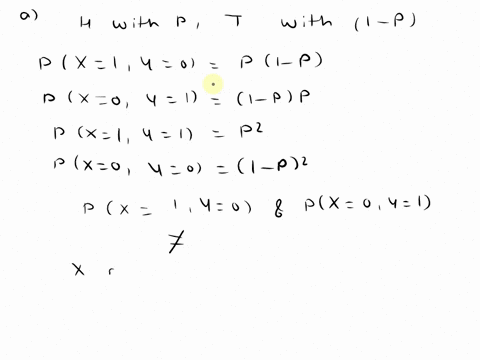 a) H with P, T with (1-P)
P(X=1, Y=0) = P(1-P)
P(X=0, Y=1) = (1-P)P
P(X=1, Y=1) = P²
P(X=0, Y=0) = (1-P)²
P(X= 1, Y=0) & P(X=0, Y=1)
≠
X